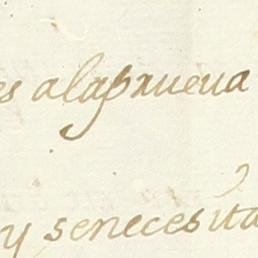 es alaprueua
y senecesita